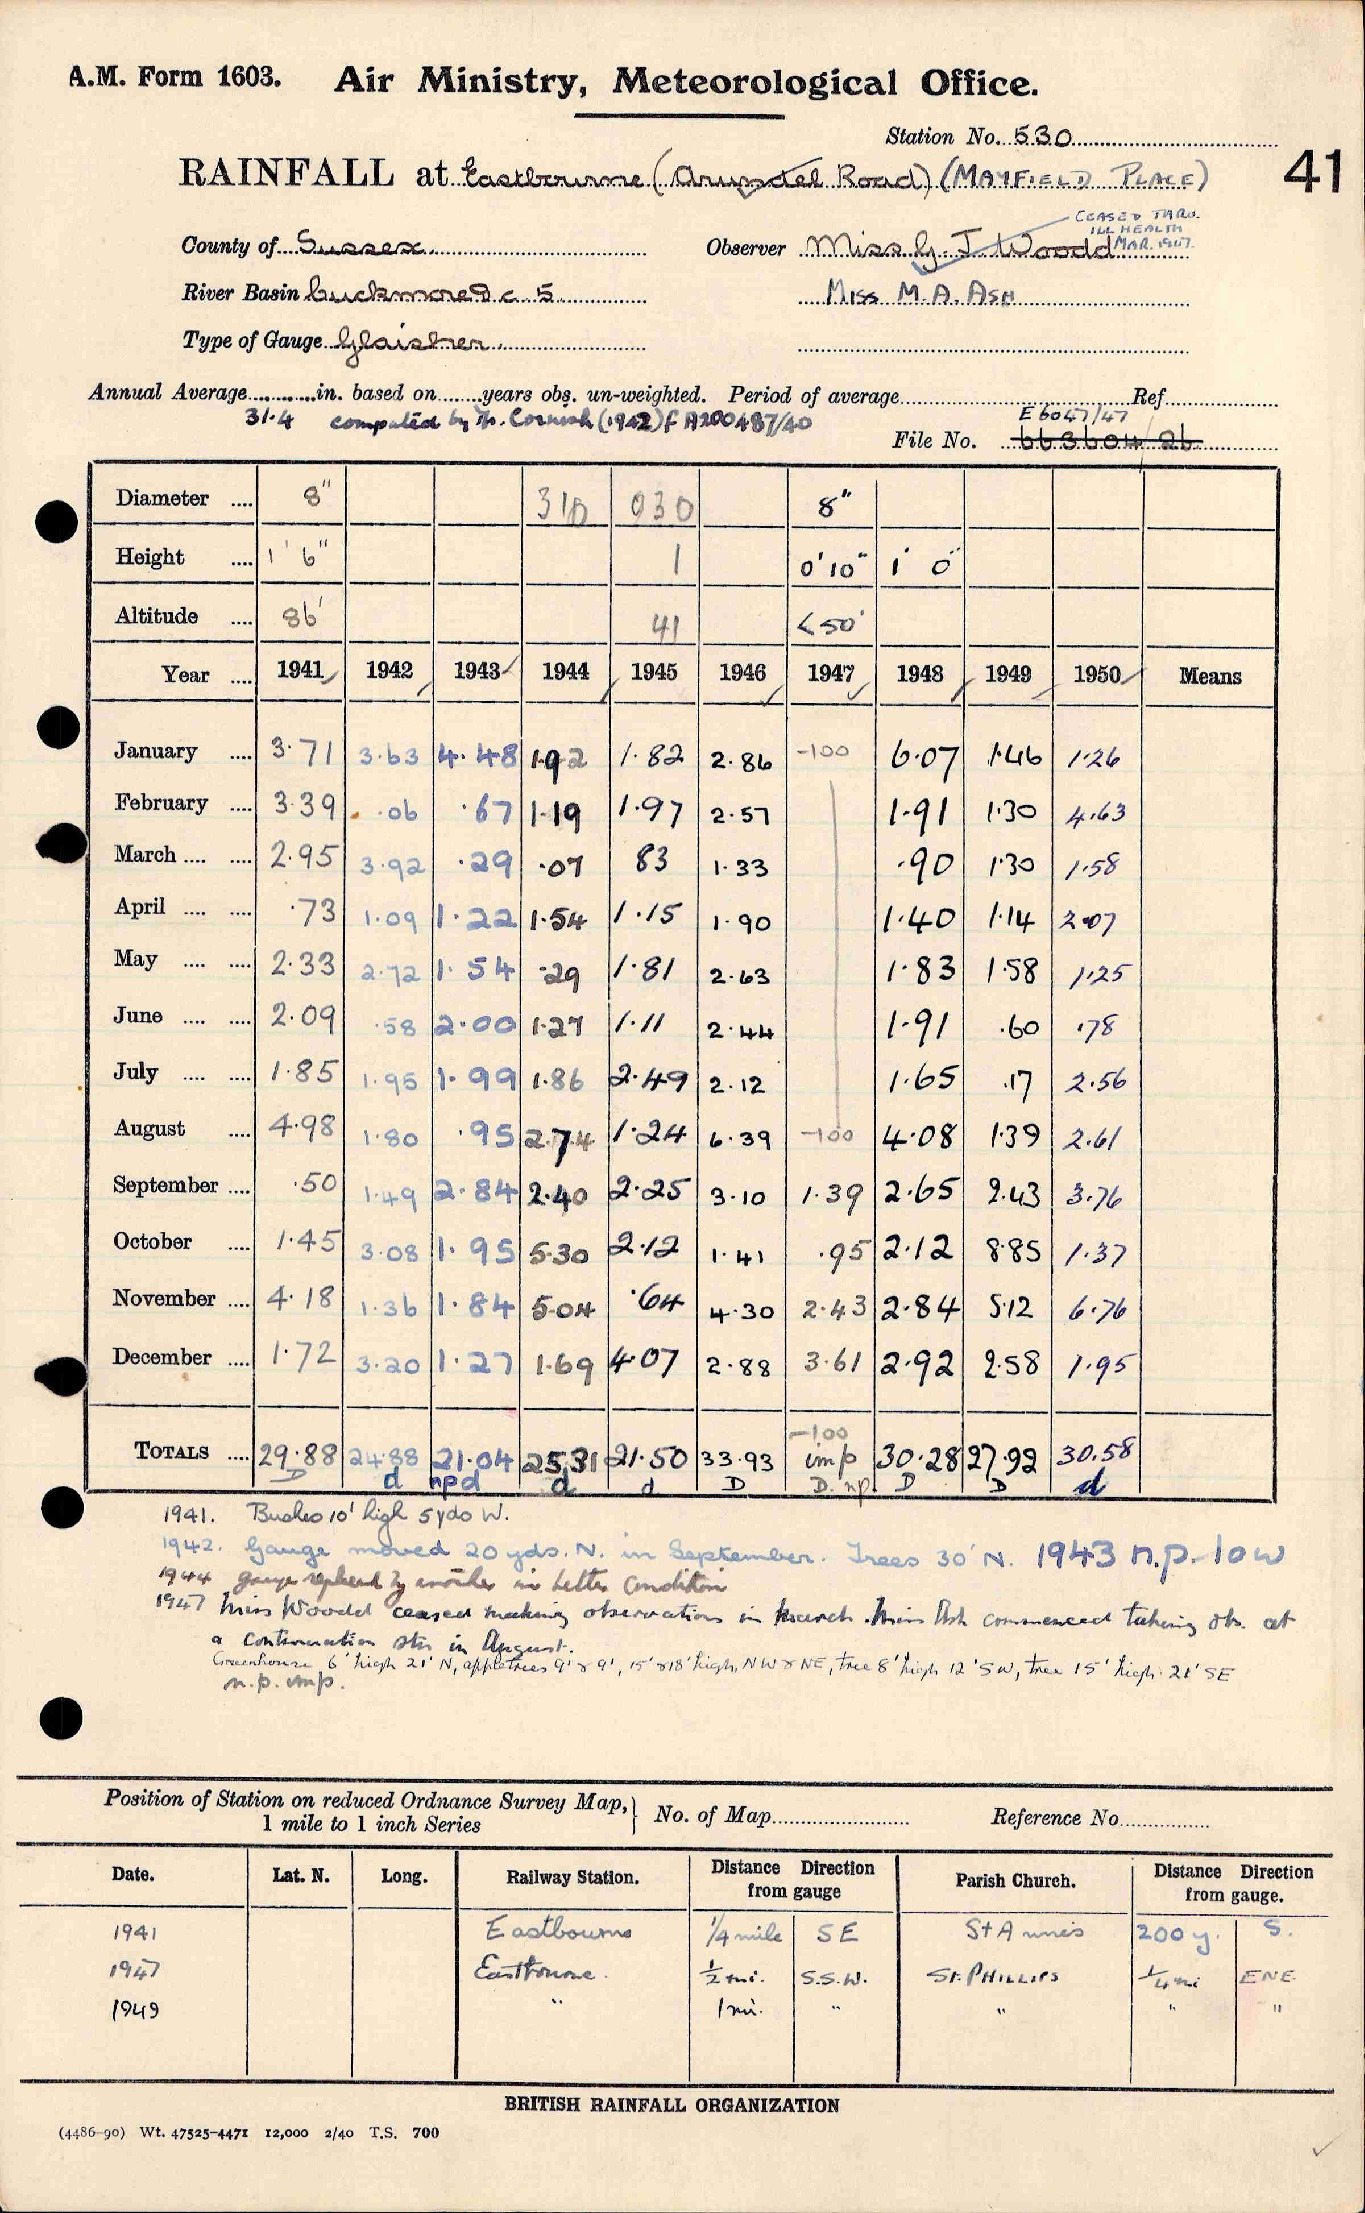 A.M. Form 1603. Air Ministry, Meteorological Office.
Station No. 530
41
RAINFALL at Eastbourne (Arundel Road) (MAYFIELD PLACE)
CEASED THRO. ILL HEALTH MAR. 1947.
County of Sussex Observer Miss G. J. Woodd
River Basin Cuckmere &c 5 Miss M. A. ASH
Type of Gauge Glaisher
Annual Average in. based on years obs. un-weighted. Period of average Ref
31.4 computed by (1942) f A200487/40 E6047/47
File No. 663604/26
Diameter .... 8" 310 030 8"
Height .... 1' 6" 1 0'10" 1' 0"
Altitude .... 86' 41 <50'
Year .... 1941 1942 1943 1944 1945 1946 1947 1948 1949 1950 Means
January .... 3.71 3.63 4.48 1.92 1.82 2.86 -100 6.07 1.46 1.26
February .... 3.39 .06 .67 1.19 1.97 2.57 1.91 1.30 4.63
March .... .... 2.95 3.92 .29 .07 83 1.33 .90 1.30 1.58
April .... .... .73 1.09 1.22 1.54 1.15 1.90 1.40 1.14 2.07
May .... .... 2.33 2.72 1.54 .29 1.81 2.63 1.83 1.58 1.25
June .... .... 2.09 .58 2.00 1.27 1.11 2.44 1.91 .60 .78
July .... .... 1.85 1.95 1.99 1.86 2.49 2.12 1.65 .17 2.56
August .... 4.98 1.80 .95 2.74 1.24 6.39 -100 4.08 1.39 2.61
September .... .50 1.49 2.84 2.40 2.25 3.10 1.39 2.65 2.43 3.76
October .... 1.45 3.08 1.95 5.30 2.12 1.41 .95 2.12 8.85 1.37
November .... 4.18 1.36 1.84 5.04 .64 4.30 2.43 2.84 5.12 6.76
December .... 1.72 3.20 1.27 1.69 4.07 2.88 3.61 2.92 2.58 1.95
-100
TOTALS .... 29.88 24.88 21.04 25.31 21.50 33.93 imp 30.28 27.92 30.58
D d npd d d D D. np. D D d
1941. Bushes 10' high 5 yds W.
1942. Gauge moved 20 yds. N. in September. Trees 30' N. 1943 n.p. low
1944 gauge replaced by another in better condition
1947 Miss Woodd ceased making observations in March. Miss Ash commenced taking obs. at
a continuation stn in August.
Greenhouse 6' high 21' N, appletrees 9' & 9', 15' & 18' high, NW & NE, tree 8' high 12' SW, tree 15' high 21' SE
n.p. imp.
Position of Station on reduced Ordnance Survey Map, 1 mile to 1 inch Series } No. of Map Reference No
Date. Lat. N. Long. Railway Station. Distance Direction from gauge Parish Church. Distance Direction from gauge.
1941 Eastbourne 1/4 mile SE St Anne's 200 y. S.
1947 Eastbourne. 1/2 mi. S.S.W. ST. PHILLIPS 1/4 mi ENE.
1949 " 1 mi. " " " "
BRITISH RAINFALL ORGANIZATION
(4486-90) Wt. 47525-4471 12,000 2/40 T.S. 700